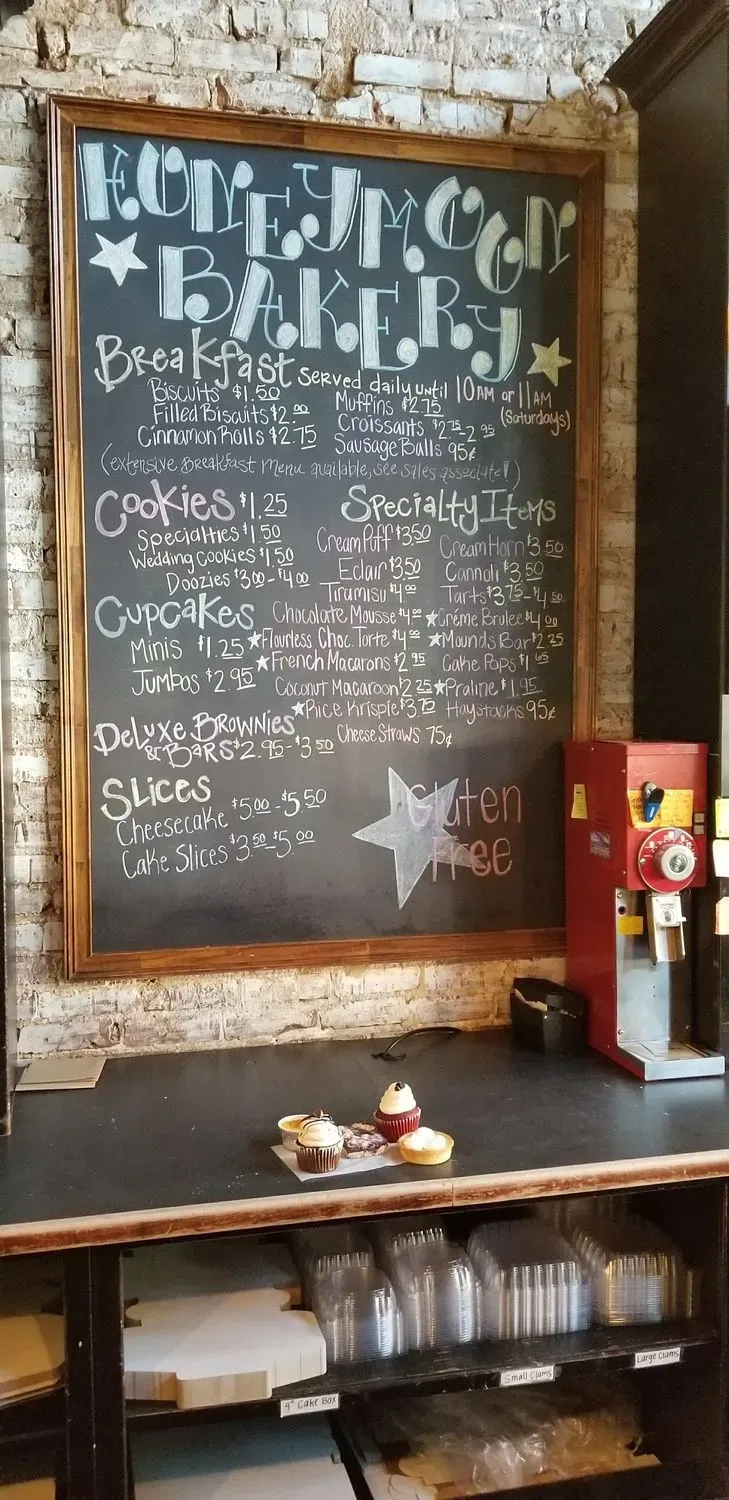 HONEYMOON
BAKERY
Breakfast served daily until 10AM or 11AM
(Saturdays)
Biscuits $1.50
Filled Biscuits $2.00
Cinnamon Rolls $2.75
Muffins $2.75
Croissants $2.75-2.95
Sausage Balls 95¢
(extensive Breakfast menu available, see sales associate!)
Cookies $1.25
Specialties $1.50
Wedding Cookies $1.50
Doozies $3.00-$4.00
Cupcakes
Minis $1.25
Jumbos $2.95
Deluxe Brownies
& Bars $2.95-$3.50
Slices
Cheesecake $5.00-$5.50
Cake Slices $3.50-$5.00
Specialty Items
Cream Puff $3.50
Eclair $3.50
Tiramisu $4.00
Chocolate Mousse $4.00
★Flourless Choc. Torte $4.00
★French Macarons $2.95
Coconut Macaroon $2.25
★Rice Krispie $3.75
Cheese Straws 75¢
Cream Horn $3.50
Cannoli $3.50
Tarts $3.75-$4.50
★Créme Brulee $4.00
★Mounds Bar $2.25
Cake Pops $1.65
★Praline $1.95
Haystacks 95¢
Gluten
Free
9" Cake Box
Small Clams
Large Clams